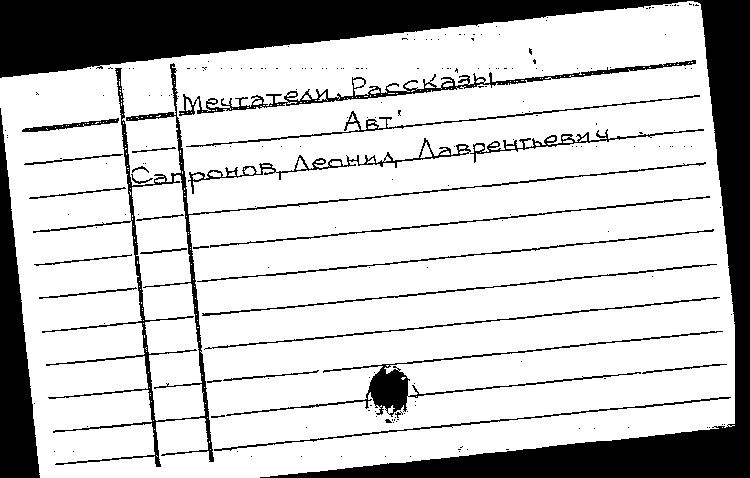 Мечтатели. Рассказы
Авт:
Сапронов, Леонид Лаврентьевич.